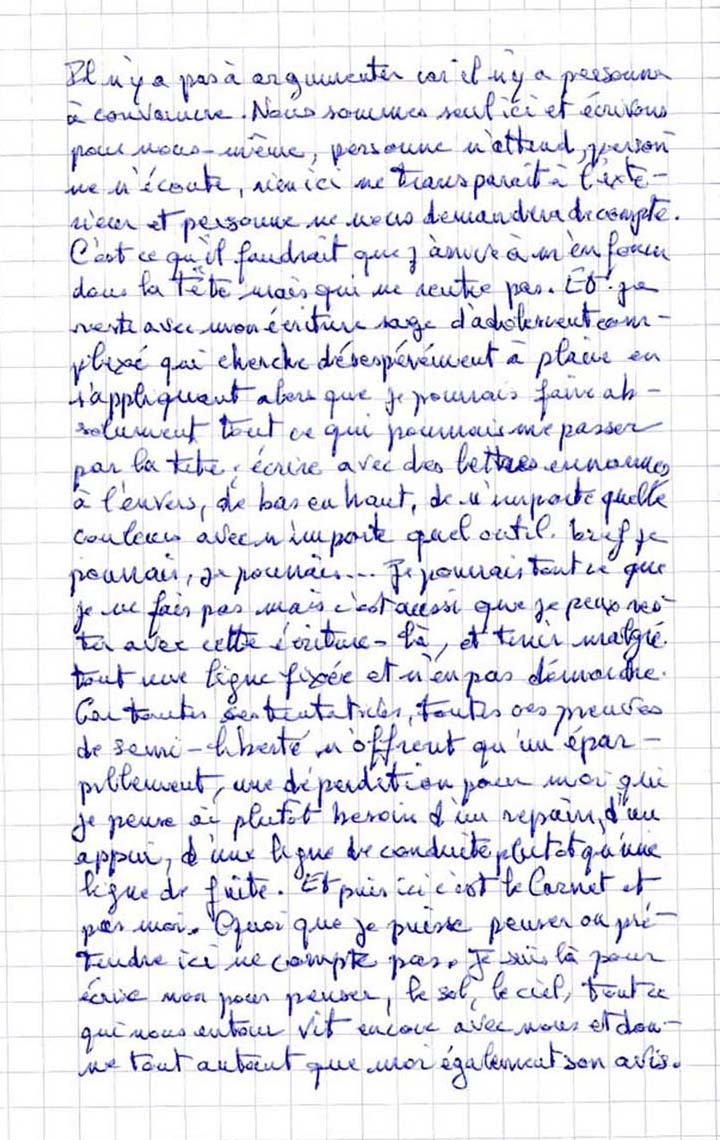 Il n'y a pas à argumenter car il n'y a personne
à convaincre. Nous sommes seul ici et écrivons
pour nous-même, personne n'attend, person
ne n'écoute, rien ici ne transparaît à l'exté-
rieur et personne ne nous demandera de compte.
C'est ce qu'il faudrait que j'arrive à m'enfoncer
dans la tête mais qui ne rentre pas. Et je
reste avec mon écriture sage d'adolescent com-
plexé qui cherche désespérément à plaire en
s'appliquant alors que je pourrais faire ab-
solument tout ce qui pourrait me passer
par la tête : écrire avec des lettres ennormes
à l'envers, de bas en haut, de n'importe quelle
couleur avec n'importe quel outil. bref je
pourrais, je pourrais... Je pourrais tout ce que
je ne fais pas mais c'est aussi que je peux res-
ter avec cette écriture-là, et tenir malgré
tout une ligne fixée et n'en pas démordre.
Car toutes ces tentatives, toutes ces preuves
de semi-liberté n'offrent qu'un épar-
pillement, une déperdition pour moi qui
je pense ai plutôt besoin d'un repain, d'un
appui, d'une ligne de conduite plutot qu'une
ligne de fuite. Et puis ici c'est le Carnet et
pas moi. Quoi que je puisse penser ou pré-
tendre ici ne compte pas. Je suis là pour
écrire non pour penser, le sol, le ciel, tout ce
qui nous entoure vit encore avec nous et don-
ne tout autant que moi également son avis.